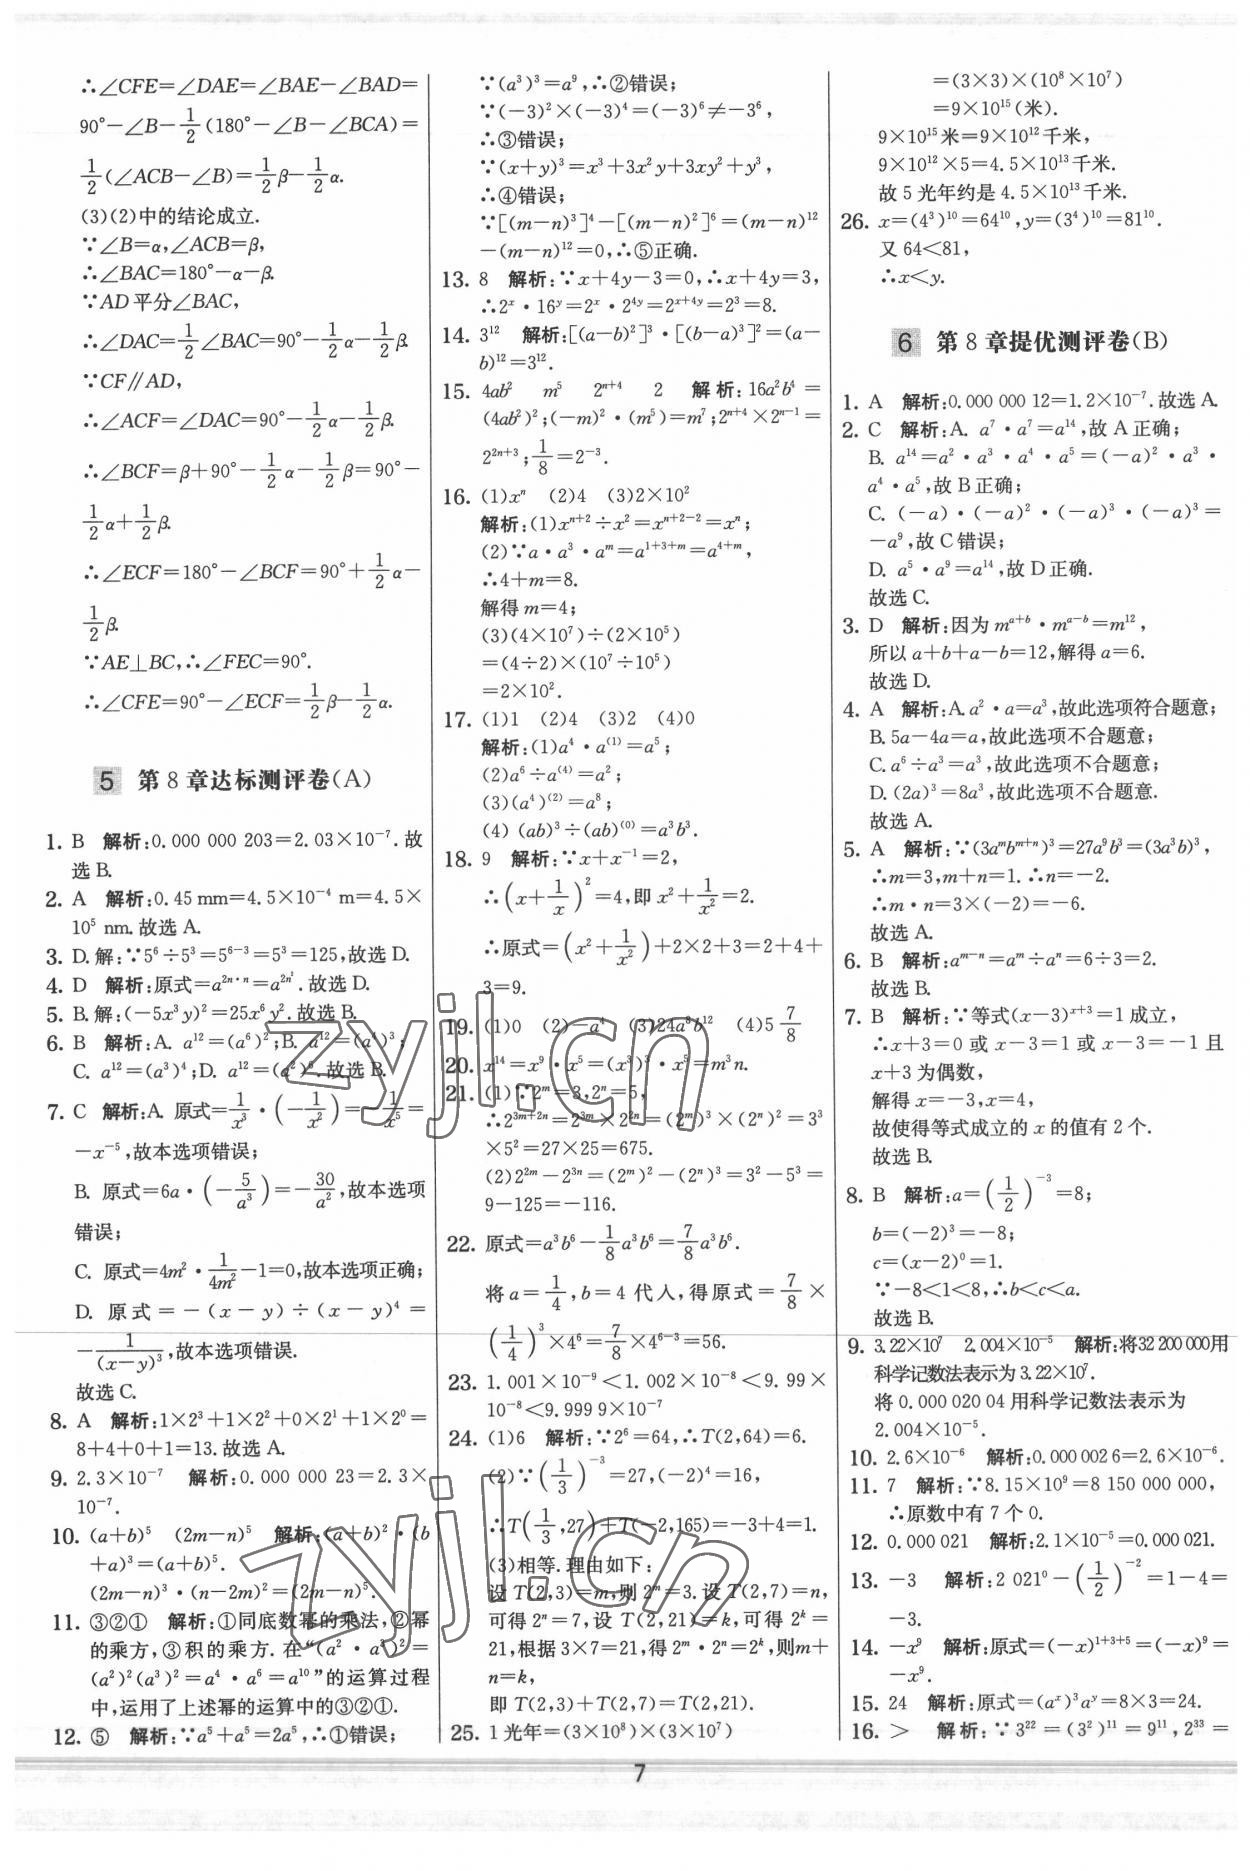 ∴∠CFE=∠DAE=∠BAE-∠BAD=
90°-∠B-1/2(180°-∠B-∠BCA)=
1/2(∠ACB-∠B)=1/2β-1/2α.
(3)(2)中的结论成立.
∵∠B=α,∠ACB=β,
∴∠BAC=180°-α-β.
∵AD平分∠BAC,
∴∠DAC=1/2∠BAC=90°-1/2α-1/2β.
∵CF∥AD,
∴∠ACF=∠DAC=90°-1/2α-1/2β.
∴∠BCF=β+90°-1/2α-1/2β=90°-
1/2α+1/2β.
∴∠ECF=180°-∠BCF=90°+1/2α-
1/2β.
∵AE⊥BC,∴∠FEC=90°.
∴∠CFE=90°-∠ECF=1/2β-1/2α.
5 第8章达标测评卷(A)
1. B 解析:0.000 000 203=2.03×10⁻⁷.故
选B.
2. A 解析:0.45 mm=4.5×10⁻⁴ m=4.5×
10⁵ nm.故选A.
3. D.解:∵5⁶÷5³=5⁶⁻³=5³=125,故选D.
4. D 解析:原式=a²ⁿ·ⁿ=a^(2n²).故选D.
5. B.解:(-5x³y)²=25x⁶y².故选B.
6. B 解析:A. a¹²=(a⁶)²;B. a¹²=(a⁴)³;
C. a¹²=(a³)⁴;D. a¹²=(a²)⁶.故选B.
7. C 解析:A. 原式=1/x³·(-1/x²)=-1/x⁵=
-x⁻⁵,故本选项错误;
B. 原式=6a·(-5/a³)=-30/a²,故本选项
错误;
C. 原式=4m²·1/4m²-1=0,故本选项正确;
D. 原式=-(x-y)÷(x-y)⁴=
-1/(x-y)³,故本选项错误.
故选C.
8. A 解析:1×2³+1×2²+0×2¹+1×2⁰=
8+4+0+1=13.故选A.
9. 2.3×10⁻⁷ 解析:0.000 000 23=2.3×
10⁻⁷.
10. (a+b)⁵ (2m-n)⁵ 解析:(a+b)²·(b
+a)³=(a+b)⁵.
(2m-n)³·(n-2m)²=(2m-n)⁵.
11. ③②① 解析:①同底数幂的乘法,②幂
的乘方,③积的乘方.在“(a²·a³)²=
(a²)²(a³)²=a⁴·a⁶=a¹⁰”的运算过程
中,运用了上述幂的运算中的③②①.
12. ⑤ 解析:∵a⁵+a⁵=2a⁵,∴①错误;
∵(a³)³=a⁹,∴②错误;
∵(-3)²×(-3)⁴=(-3)⁶≠-3⁶,
∴③错误;
∵(x+y)³=x³+3x²y+3xy²+y³,
∴④错误;
∵[(m-n)³]⁴-[(m-n)²]⁶=(m-n)¹²
-(m-n)¹²=0,∴⑤正确.
13. 8 解析:∵x+4y-3=0,∴x+4y=3,
∴2ˣ·16ʸ=2ˣ·2⁴ʸ=2ˣ⁺⁴ʸ=2³=8.
14. 3¹² 解析:[(a-b)²]³·[(b-a)³]²=(a-
b)¹²=3¹².
15. 4ab² m⁵ 2ⁿ⁺⁴ 2 解析:16a²b⁴=
(4ab²)²;(-m)²·(m⁵)=m⁷;2ⁿ⁺⁴×2ⁿ⁻¹=
2²ⁿ⁺³;1/8=2⁻³.
16. (1)xⁿ (2)4 (3)2×10²
解析:(1)xⁿ⁺²÷x²=xⁿ⁺²⁻²=xⁿ;
(2)∵a·a³·aᵐ=a¹⁺³⁺ᵐ=a⁴⁺ᵐ,
∴4+m=8.
解得m=4;
(3)(4×10⁷)÷(2×10⁵)
=(4÷2)×(10⁷÷10⁵)
=2×10².
17. (1)1 (2)4 (3)2 (4)0
解析:(1)a⁴·a⁽¹⁾=a⁵;
(2)a⁶÷a⁽⁴⁾=a²;
(3)(a⁴)⁽²⁾=a⁸;
(4) (ab)³÷(ab)⁽⁰⁾=a³b³.
18. 9 解析:∵x+x⁻¹=2,
∴(x+1/x)²=4,即x²+1/x²=2.
∴原式=(x²+1/x²)+2×2+3=2+4+
3=9.
19. (1)0 (2)-a⁴ (3)24a⁸b¹² (4)5 7/8
20. x¹⁴=x⁹·x⁵=(x³)³·x⁵=m³n.
21. (1)∵2ᵐ=3,2ⁿ=5,
∴2³ᵐ⁺²ⁿ=2³ᵐ×2²ⁿ=(2ᵐ)³×(2ⁿ)²=3³
×5²=27×25=675.
(2)2²ᵐ-2³ⁿ=(2ᵐ)²-(2ⁿ)³=3²-5³=
9-125=-116.
22. 原式=a³b⁶-1/8a³b⁶=7/8a³b⁶.
将a=1/4,b=4代入,得原式=7/8×
(1/4)³×4⁶=7/8×4⁶⁻³=56.
23. 1.001×10⁻⁹<1.002×10⁻⁸<9.99×
10⁻⁸<9.999 9×10⁻⁷
24. (1)6 解析:∵2⁶=64,∴T(2,64)=6.
(2)∵(1/3)⁻³=27,(-2)⁴=16,
∴T(1/3,27)+T(-2,165)=-3+4=1.
(3)相等.理由如下:
设T(2,3)=m,则2ᵐ=3.设T(2,7)=n,
可得2ⁿ=7,设T(2,21)=k,可得2ᵏ=
21,根据3×7=21,得2ᵐ·2ⁿ=2ᵏ,则m+
n=k,
即T(2,3)+T(2,7)=T(2,21).
25. 1光年=(3×10⁸)×(3×10⁷)
=(3×3)×(10⁸×10⁷)
=9×10¹⁵(米).
9×10¹⁵米=9×10¹²千米,
9×10¹²×5=4.5×10¹³千米.
故5光年约是4.5×10¹³千米.
26. x=(4³)¹⁰=64¹⁰,y=(3⁴)¹⁰=81¹⁰.
又64<81,
∴x<y.
6 第8章提优测评卷(B)
1. A 解析:0.000 000 12=1.2×10⁻⁷.故选A.
2. C 解析:A. a⁷·a⁷=a¹⁴,故A正确;
B. a¹⁴=a²·a³·a⁴·a⁵=(-a)²·a³·
a⁴·a⁵,故B正确;
C. (-a)·(-a)²·(-a)³·(-a)³=
-a⁹,故C错误;
D. a⁵·a⁹=a¹⁴,故D正确.
故选C.
3. D 解析:因为mᵃ⁺ᵇ·mᵃ⁻ᵇ=m¹²,
所以a+b+a-b=12,解得a=6.
故选D.
4. A 解析:A.a²·a=a³,故此选项符合题意;
B. 5a-4a=a,故此选项不合题意;
C. a⁶÷a³=a³,故此选项不合题意;
D. (2a)³=8a³,故此选项不合题意.
故选A.
5. A 解析:∵(3aᵐbᵐ⁺ⁿ)³=27a⁹b³=(3a³b)³,
∴m=3,m+n=1.∴n=-2.
∴m·n=3×(-2)=-6.
故选A.
6. B 解析:aᵐ⁻ⁿ=aᵐ÷aⁿ=6÷3=2.
故选B.
7. B 解析:∵等式(x-3)ˣ⁺³=1成立,
∴x+3=0或x-3=1或x-3=-1且
x+3为偶数,
解得x=-3,x=4,
故使得等式成立的x的值有2个.
故选B.
8. B 解析:a=(1/2)⁻³=8;
b=(-2)³=-8;
c=(x-2)⁰=1.
∵-8<1<8,∴b<c<a.
故选B.
9. 3.22×10⁷ 2.004×10⁻⁵ 解析:将32 200 000用
科学记数法表示为3.22×10⁷.
将0.000 020 04用科学记数法表示为
2.004×10⁻⁵.
10. 2.6×10⁻⁶ 解析:0.000 002 6=2.6×10⁻⁶.
11. 7 解析:∵8.15×10⁹=8 150 000 000,
∴原数中有7个0.
12. 0.000 021 解析:2.1×10⁻⁵=0.000 021.
13. -3 解析:2 021⁰-(1/2)⁻²=1-4=
-3.
14. -x⁹ 解析:原式=(-x)¹⁺³⁺⁵=(-x)⁹=
-x⁹.
15. 24 解析:原式=(aˣ)³aʸ=8×3=24.
16. > 解析:∵3²²=(3²)¹¹=9¹¹,2³³=
7
zyjl.cn
zyjl.cn